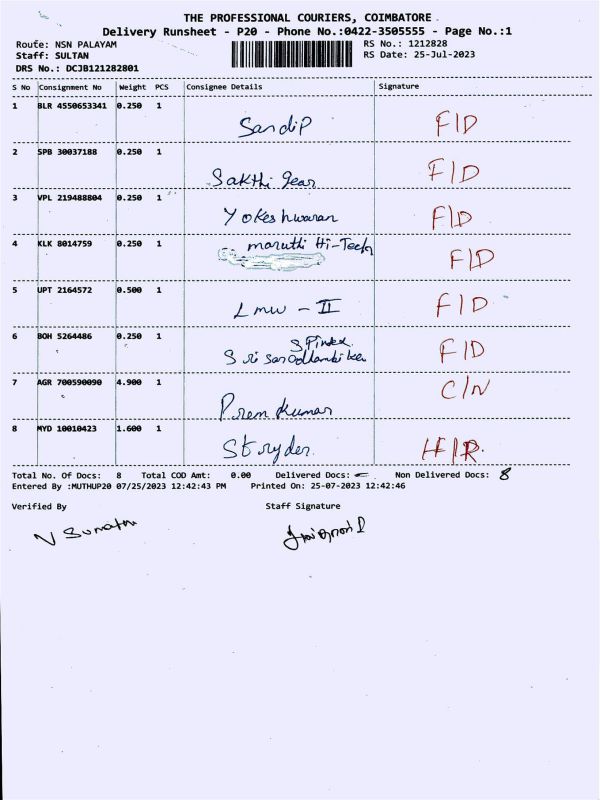 THE PROFESSIONAL COURIERS, COIMBATORE
Delivery Runsheet - P20 - Phone No.:0422-3505555 - Page No.:1
Route: NSN PALAYAM RS No.: 1212828
Staff: SULTAN RS Date: 25-Jul-2023
DRS No.: DCJB121282801
S No Consignment No Weight PCS Consignee Details Signature
1 BLR 4550653341 0.250 1 Sandip F/D
2 SPB 30037188 0.250 1 Sakthi gear F/D
3 VPL 219488804 0.250 1 Yokeshwaran F/D
4 KLK 8014759 0.250 1 maruthi Hi-Tech F/D
5 UPT 2164572 0.500 1 Lmw - II F/D
6 BOH 5264486 0.250 1 Sri F/D
7 AGR 700590090 4.900 1 Prem Kumar C/N
8 MYD 10010423 1.600 1 Stryder H/R
Total No. Of Docs: 8 Total COD Amt: 0.00 Delivered Docs: Non Delivered Docs: 8
Entered By :MUTHUP20 07/25/2023 12:42:43 PM Printed On: 25-07-2023 12:42:46
Verified By Staff Signature